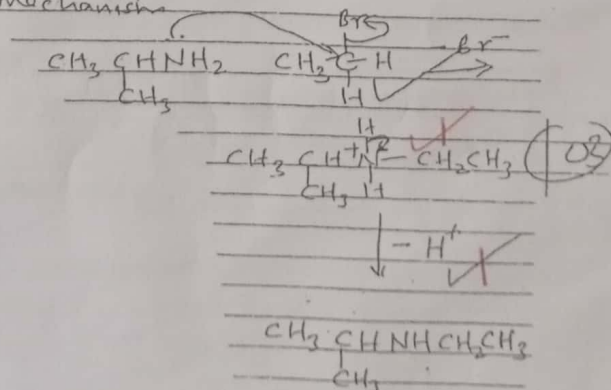 Mechanism
Br
CH3 CHNH2 CH3 C H Br−
CH3 H
H
CH3 CH +N − CH2CH3 03
CH3 H
− H+
CH3 CH NH CH2CH3
CH3